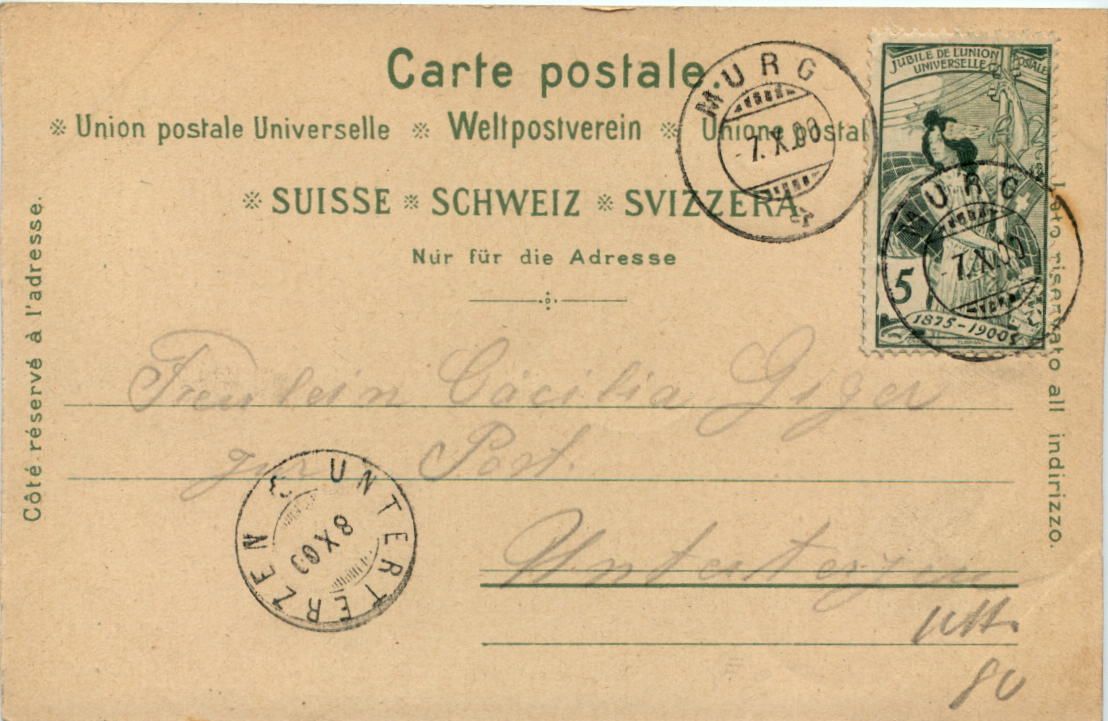 Carte postale
※ Union postale Universelle ※ Weltpostverein ※ Unione postal
※ SUISSE ※ SCHWEIZ ※ SVIZZERA
Nur für die Adresse
Côté réservé à l'adresse.
Lato riservato all indirizzo.
JUBILÉ DE L'UNION
POSTALE
UNIVERSELLE
5
1875-1900
MURG
-7.X.00
MURG
-7.X.00
Fräulein Cäcilia Giger
zur Post.
Unterterzen
UNTERTERZEN
8 X 00
80